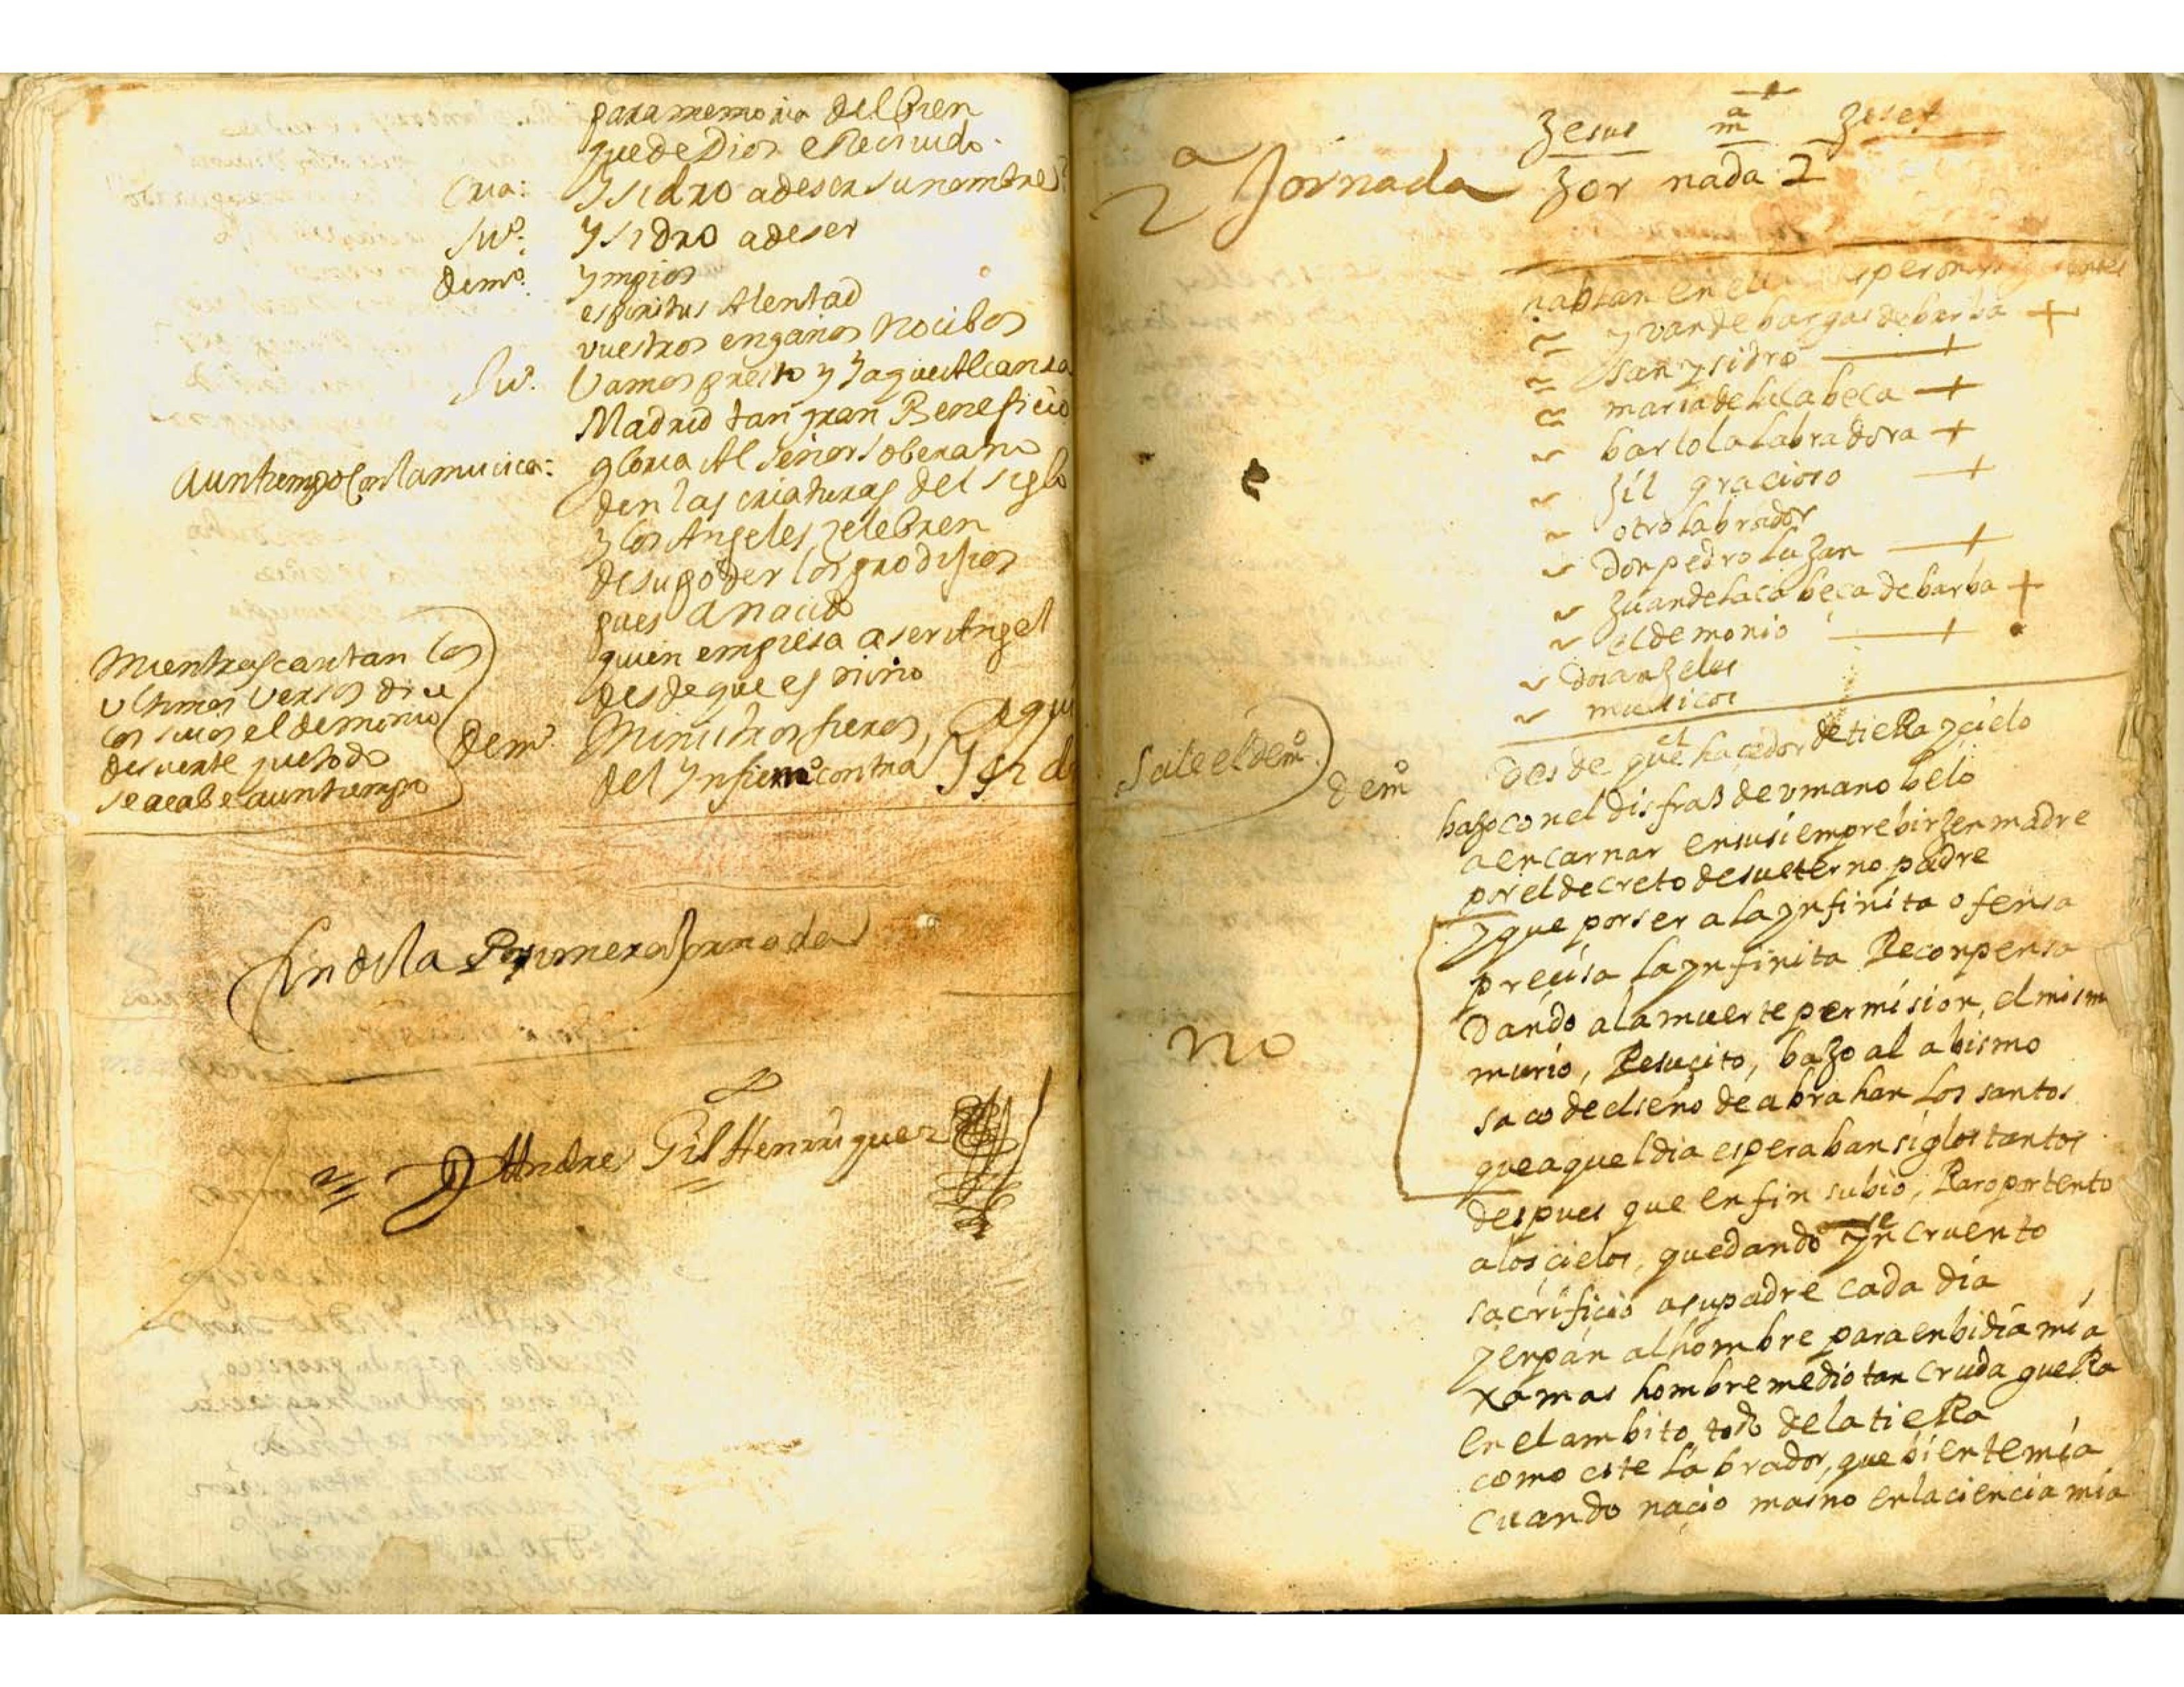 para memoria del bien
que de Dios e Recivido.
Cria: Ysidro a de ser su nombre
Ysidro a de ser
demo. ympios
espiritus Alentad
vuestros engaños nocibos
Vamos presto y ya que Alcansa
Madrid tan gran Beneficio
a un tiempo con la mucica: gloria Al señor soberano
den las criaturas del siglo
y los Angeles zelebren
de su poder los prodijios
pues a nacido
quien empiesa a ser Angel
desde que es niño
Mientras cantan los
ultimos versos dice
los suios el demonio
de suerte que todo
se acabe a un tiempo
demo. Ministros fieros, Aqui
del Ynfierno contra Ysid
fin de la Primera Jornada
D Andres Gil Henrriquez
Jesus ma Jesef
2a Jornada Jor nada 2
hablan en el
yvan de bargas de barba
san ysidro
maria de la cabeca
bartola labradora
jil gracioso
otro labrador
don pedro lujan
Juan de la cabeca de barba
el demonio
dos anjeles
musicos
Sale el demo. demo
desde que el hacedor de tieRa y cielo
bajo con el disfraz de umano belo
a encarnar en su siempre birjen madre
por el decreto de su eterno padre
y que por ser a la ynfinita ofensa
precisa la ynfinita Reconpensa
Dando a la muerte permision, el mism
no
murio, Resucito, bajo al abismo
saco de el seno de abrahan los santos
que aquel dia esperaban siglos tantos
despues que en fin subio, Raro portento
a los cielos, quedandose yncruento
sacrificio a su padre cada dia
y en pan al hombre para enbidia mia
xamas hombre me dio tan cruda gueRa
en el ambito todo de la tieRa
como este labrador, que bien temia
cuando nacio mas no en la ciencia mia